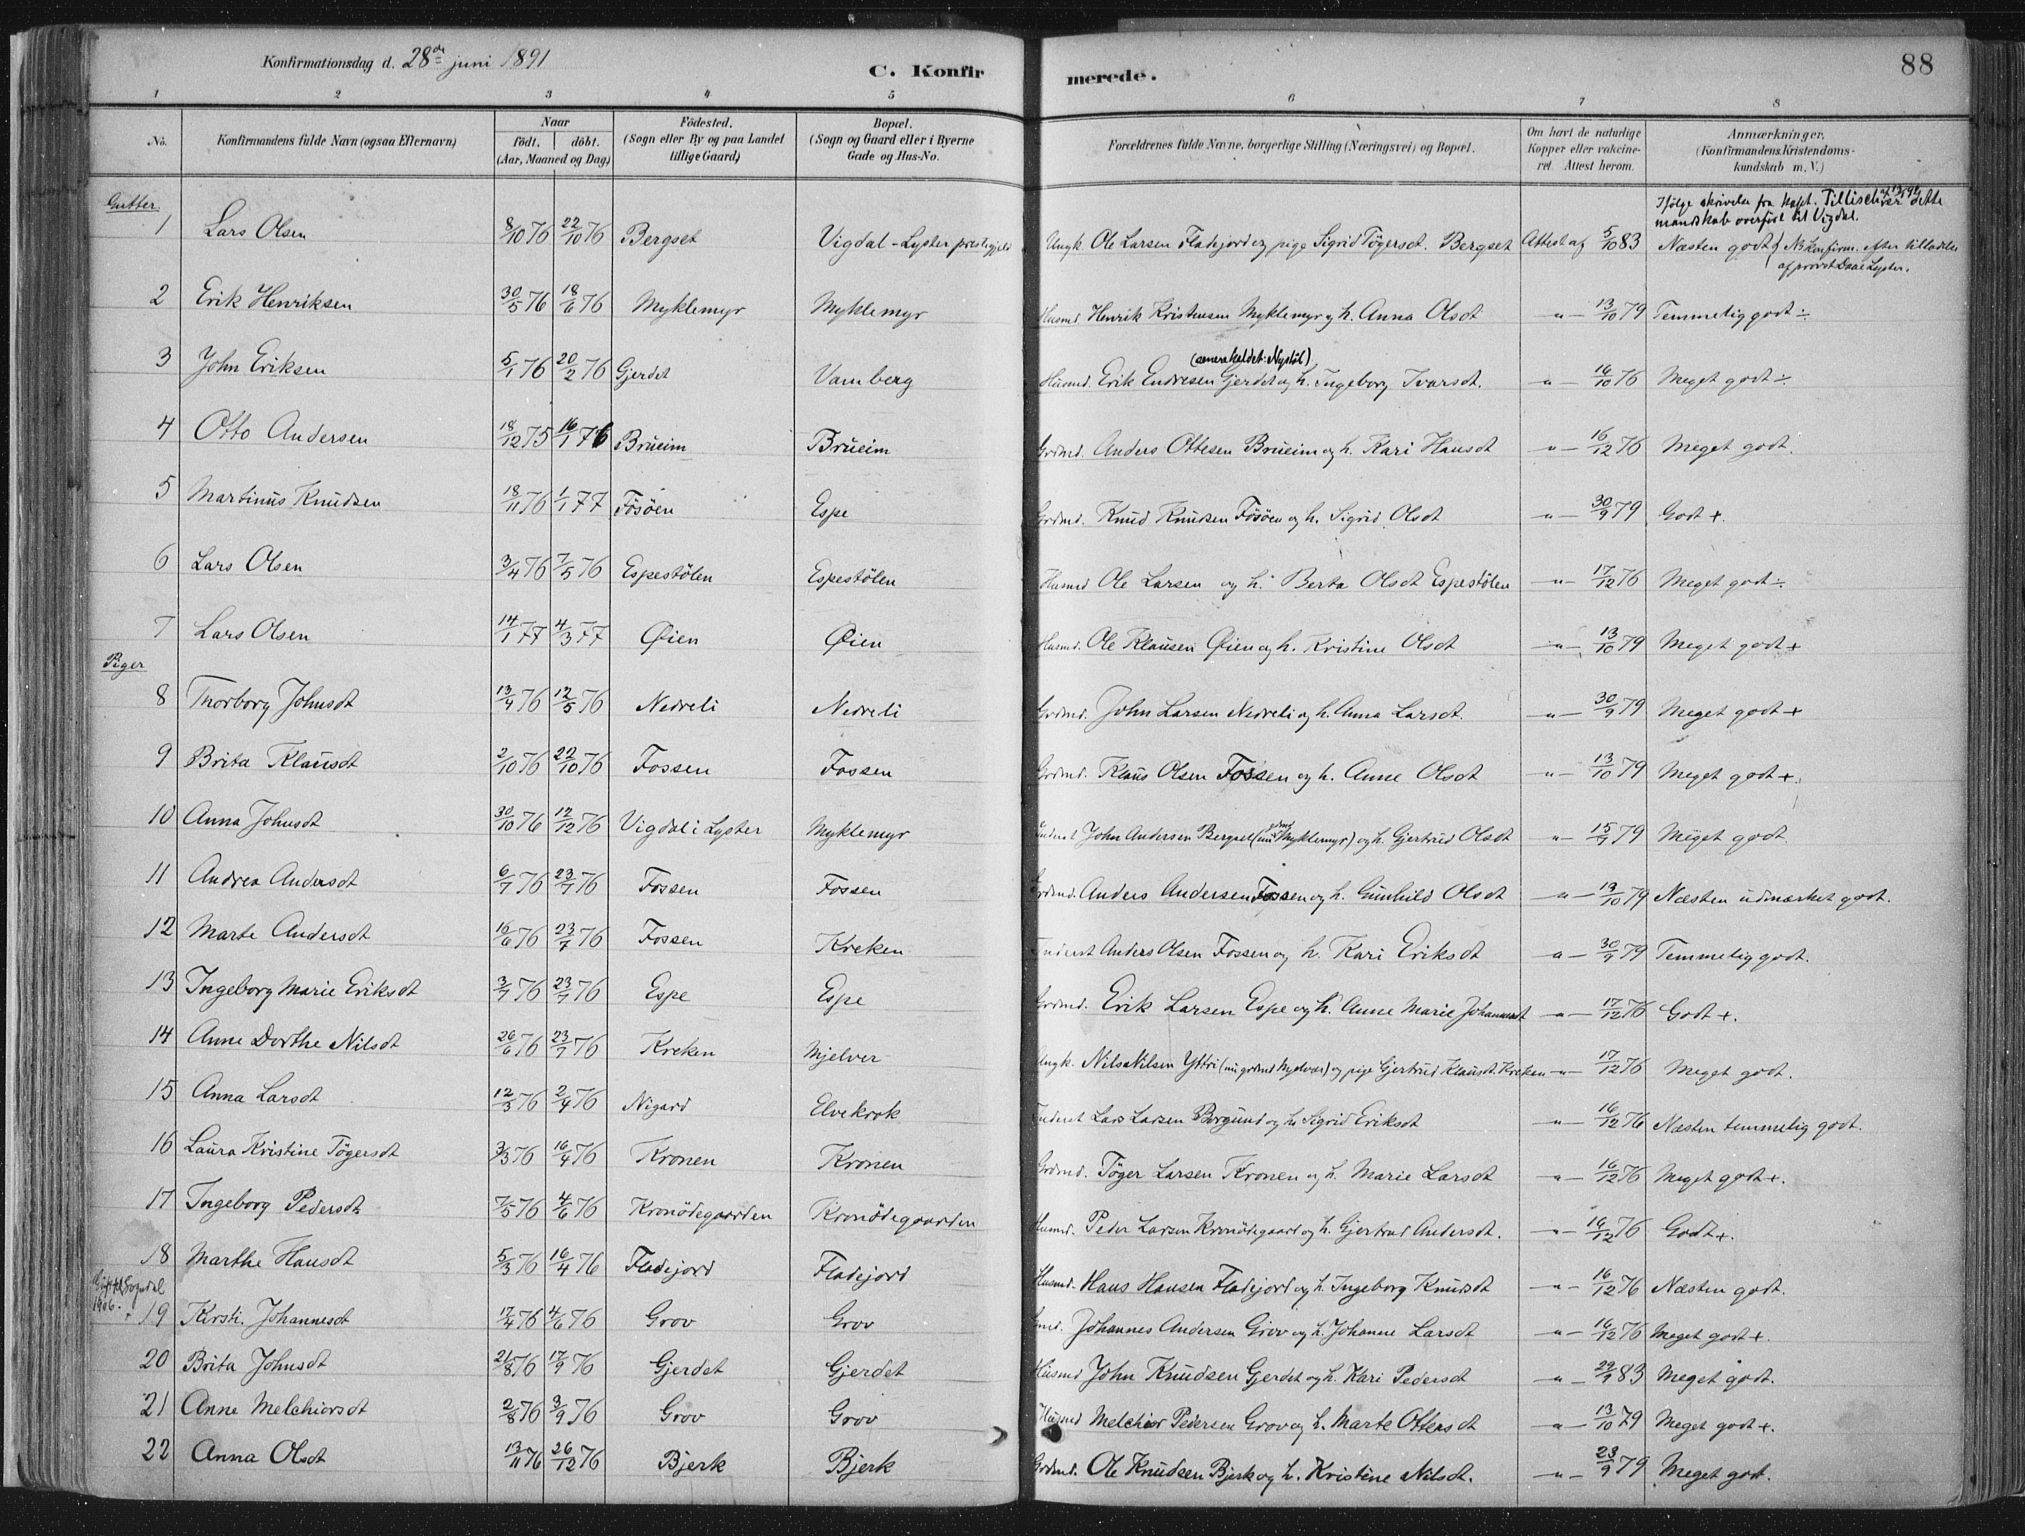 Konfirmationsdag d. 28de juni 1891
C. Konfirmerede.
88
1 2 3 4 5 6 7 8
No. Konfirmandens fulde Navn (ogsaa Efternavn) Naar født. døbt. (Aar, Maaned og Dag) Fødested. (Sogn eller By og paa Landet tillige Gaard) Bopæl. (Sogn og Gaard eller i Byerne Gade og Hus-No. Forældrenes fulde Navne, borgerlige Stilling (Næringsvei) og Bopæl. Om havt de naturlige Kopper eller vakcineret. Attest herom. Anmærkninger, (Konfirmandens Kristendomskundskab m. V.)
Gutter
Ifølge skrivelse fra kapt. Tillisch er dette
mandskab overført til Vigdal.
1 Lars Olsen 8/10 76 22/10 76 Bergset Vigdal-Lyster prestegjeld Ungk. Ole Larsen Fladejord og pige Sigrid Tøgersdt. Bergset Attest af 5/10 83 Næsten godt NB Konfirm. efter tilladelse
af provst Daae Lyster.
2 Erik Henriksen 30/5 76 18/6 76 Myklemyr Myklemyr Husmd. Henrik Kristensen Myklemyr og h. Anna Olsdt " — 13/10 79 Temmelig godt ÷
(senere kaldet: Nystøl)
3 John Eriksen 5/1 76 20/2 76 Gjerdet Vamberg Husmd. Erik Endresen Gjerdet og h. Ingeborg Ivarsdt. " — 16/10 76 Meget godt ÷
4 Otto Andersen 18/12 75 16/1 76 Brueim Brueim Grdmd. Anders Ottesen Brueim og h. Kari Hansdt " — 16/12 76 Meget godt.
5 Martinus Knudsen 18/11 76 1/1 77 Fösöen Espe Grdmd. Knud Knudsen Fösöen og h. Sigrid Olsdt " — 30/9 79 Godt +.
6 Lars Olsen 3/4 76 7/5 76 Espestölen Espestölen Husmd Ole Larsen og h. Berta Olsdt Espestölen " — 17/12 76 Meget godt ÷.
7 Lars Olsen 14/1 77 4/3 77 Øien Øien Husmd. Ole Klausen Øien og h. Kristine Olsdt " — 13/10 79 Meget godt +
Piger
8 Thorborg Johnsdt 13/4 76 12/5 76 Nedreli Nedreli Grdmd. John Larsen Nedreli og h. Anna Larsdt. " — 30/9 79 Meget godt +
9 Brita Klausdt 2/10 76 22/10 76 Fossen Fossen Grdmd. Klaus Olsen Fossen og h. Anne Olsdt " — 13/10 79 Meget godt +.
10 Anna Johnsdt 30/10 76 12/12 76 Vigdal i Lyster Myklemyr Inderst John Andersen Bergset (nu Myklemyr) og h. Gjertrud Olsdt " — 15/9 79 Meget godt.
11 Andrea Andersdt 6/7 76 23/7 76 Fossen Fossen Grdmd. Anders Andersen Fossen og h. Gunhild Olsdt " — 13/10 79 Næsten udmærket godt.
12 Marte Andersdt 16/6 76 23/7 76 Fossen Kreken Inderst Anders Olsen Fossen og h. Kari Eriksdt " — 30/9 79 Temmelig godt.
13 Ingeborg Marie Eriksdt 3/7 76 23/7 76 Espe Espe Grdmd. Erik Larsen Espe og h. Anne Marie Johannesdt " — 17/12 76 Godt +.
14 Anne Dorthe Nilsdt 26/6 76 23/7 76 Kreken Mjelver Ungk. Nils Nilsen Yttri (nu grdmd Mjelvær) og pige Gjertrud Klausdt. Kreken " — 17/12 76 Meget godt.
15 Anna Larsdt 12/3 76 2/4 76 Nigard Elvekrok Inderst Lars Larsen Borgund og h. Sigrid Eriksdt " — 16/12 76 Næsten temmelig godt.
16 Laura Kristine Tögersdt 3/3 76 16/4 76 Kronen Kronen Grdmd. Töger Larsen Kronen og h. Marie Larsdt " — 16/12 76 Meget godt +.
17 Ingeborg Pedersdt. 7/5 76 4/6 76 Kronödegaarden Kronödegaarden Husmd. Peder Larsen Kronödegaard og h. Gjertrud Andersdt. " — 16/12 76 Godt +.
18 Marthe Hansdt 5/3 76 16/4 76 Fladejord Fladejord Husmd. Hans Hansen Fladejord og h. Ingeborg Knudsdt " — 16/12 76 Næsten godt.
Gift til Sogndal
1906.
19 Kirsti Johannesdt 17/4 76 4/6 76 Grov Grov Gmd. Johannes Andersen Grov og h. Johanne Larsdt " — 16/12 76 Meget godt +.
20 Brita Johnsdt 21/8 76 17/9 76 Gjerdet Gjerdet Husmd John Knudsen Gjerdet og h. Kari Pedersdt " — 29/9 83 Meget godt.
21 Anne Melchiorsdt 2/8 76 3/9 76 Grov Grov Husmd Melchior Pedersen Grov og h. Marte Ottersdt " — 13/10 79 Meget godt +.
22 Anna Olsdt 13/11 76 26/12 76 Bjerk Bjerk Grdmd. Ole Knudsen Bjerk og h. Kristine Nilsdt. " — 23/9 79 Meget godt.